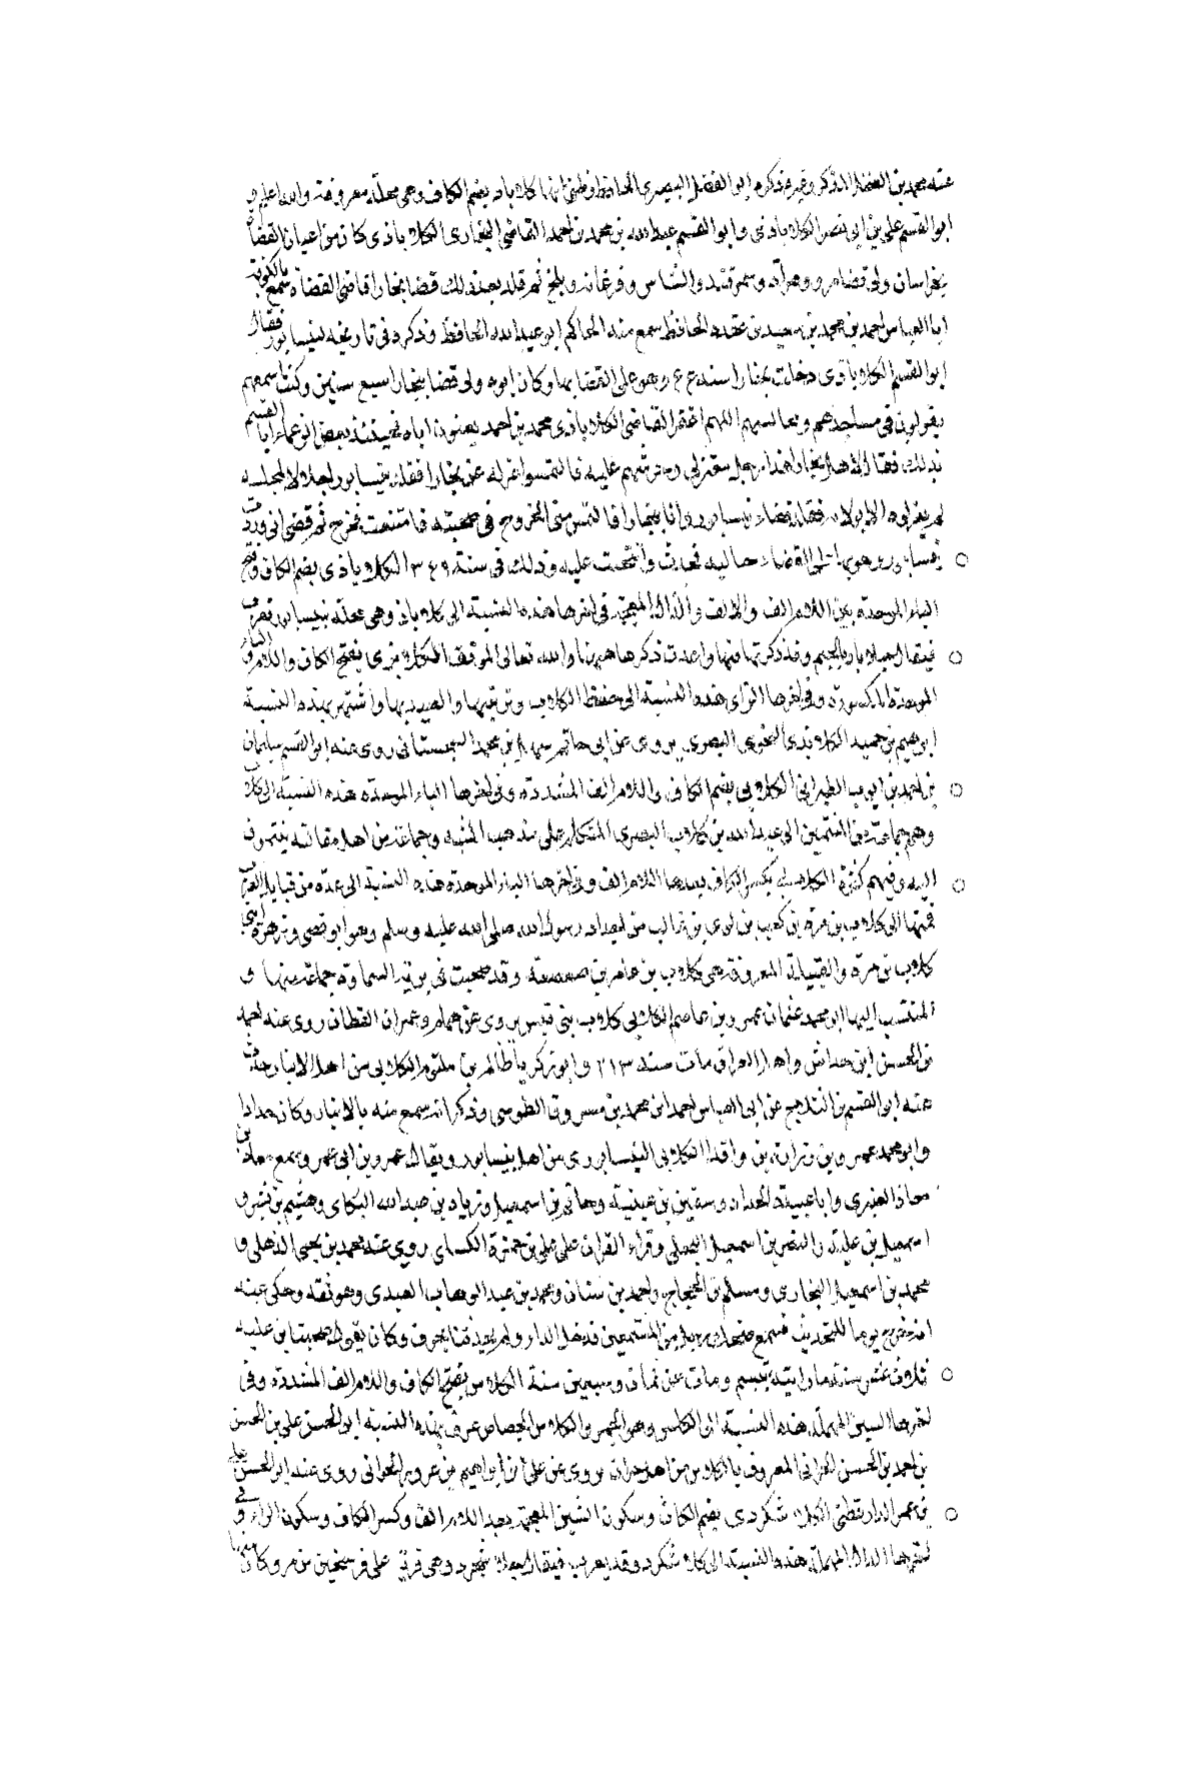 عنه محمد بن الفضل المذكر وغيره ذكره ابو الفضل البصرى الحافظ وظنى انها كلاباد بضم الكاف وهى محلة معروفة والله اعلم و
ابو القسم على بن ابى نصر الكلاباذى وابو القسم عبد الله بن محمد بن احمد القاضى البخارى الكلاباذى كان من اعيان القضاة
بخراسان ولى قضا مرو وهراة وسمرقند والشاس وفرغانه وبلخ ثم قلد بعد ذلك قضا بخارا قاضى القضاة سمع بالكوفة
ابا العباس احمد بن محمد بن سعيد بن عقده الحافظ سمع منه الحاكم ابو عبد الله الحافظ وذكره فى تاريخه لنيسابور فقال
ابو القسم الكلاباذى دخلت بخارا سنه وهو على القضا بها وكان ابوه ولى قضا بخارا سبع سنين وكنت اسمعهم
يقولون فى مساجدهم ومجالسهم اللهم اغفر للقاضى الكلاباذى محمد بن احمد يعنون اباه فحينئذ بعض ابا القسم
بذلك فقال لاهل بخارا هذا رجل معتزلى عليه فالتمسوا عزله عن بخارا فقلد نيسابور لمجلسه
فقلد قضاء نيسابور وانا ببخارا فالتمس منى الخروج فى صحبته فامتنعت فخرج ثم قضى انى وردت
نيسابور وهو بها على القضاء فحدث وانتخبت عليه وذلك فى سنة ٣٤٩ الكلاباذى بضم الكاف وفتح
الباء الموحدة بين اللام الف والالف والذال المعجمة فى اخرها هذه النسبة الى كلاباذ وهى محلة بنيسابور
فيقال بالجيم وقد ذكرتها فيها واعدت ذكرها هاهنا والله تعالى الموفق الكلابزى بفتح الكاف واللام والباء
الموحدة المكسورة وفى اخرها الزاى هذه النسبة الى حفظ الكلاب وتربيتها والصيد بها واشتهر بهذه النسبة
ابرهيم بن حميد الكلابزى النحوى البصرى يروى عن ابى حاتم سهل بن محمد السجستانى روى عنه ابو القسم سليمان
بن احمد بن ايوب الطبرانى الكلابى بضم الكاف واللام الف المشددة وفى اخرها الباء الموحدة هذه النسبة الى كلاب
وهم جماعة من المنتمين الى عبد الله بن كلاب البصرى المتكلم على مذهب السنة وجماعة من اهل مقالته ينتمون
اليه وفيهم كثرة الكلابى بكسر الكاف بعدها اللام الف وفى اخرها الباء الموحدة هذه النسبة الى عدة من قبايل العرب
فمنها الى كلاب بن مرة بن كعب بن لوى بن غالب من اجداد رسول الله صلى الله عليه وسلم وهو ابو قصى وزهرة ابنى
كلاب بن مرة والقبيلة المعروفة هى كلاب بن عامر بن صعصعة وقد صحبت فى برية السماوة جماعة منها و
المنتسب اليها ابو محمد عثمان عمرو بن عاصم الكلابى كلاب بنى قيس يروى عن همام وعمران القطان روى عنه احمد
بن الحسن ابن خداش واهل العراق مات سنة ٢١٣ وابو زكريا ظالم بن الكلابى من اهل الانبار حدث
عنه ابو القسم بن الثلاج عن ابى العباس احمد ابن محمد بن مسروق الطوسى وذكر انه سمع منه بالانبار وكان حدادا
وابو محمد عمرو بن زرارة بن واقد الكلابى النيسابورى من اهل نيسابور ويقال عمرو بن ابى عمرو سمع معاذ بن
معاذ العنبرى وابا عبيدة الحداد وسفين بن عيينة وحاتم بن اسمعيل وزياد بن عبد الله البكاى وهشيم بن بشر و
اسمعيل بن علية والنضر بن اسمعيل البجلى وقراء القران على على بن حمزة الكساى روى عنه محمد بن يحيى الذهلى و
محمد بن اسمعيل البخارى ومسلم بن الحجاج واحمد بن سنان ومحمد بن عبد الوهاب العبدى وهو ثقة وحكى عنه
انه خرج يوما للتحديث فسمع ضحك رجل من المستمعين فدخل الدار ولم يحدثنا بحرف وكان يقول صحبت ابن علية
ثلاث عشر سنة ما رايته تبسم ومات عن ثمان وسبعين سنة الكلاس بفتح الكاف واللام الف المشددة وفى
اخرها السين المهملة هذه النسبة الى الكلس وهو الجير والكلاس الجصاص عرف بهذه النسبة ابو الحسن على بن الحسن
بن احمد بن الحسن الحرانى المعروف بالكلاس من اهل حران يروى عن على بن ابراهيم بن عزور الحرانى روى عنه ابو الحسن على
بن عمر الدارقطنى الكلاشكردى بضم الكاف وسكون الشين المعجمة بعد اللام الف وكسر الكاف وسكون الراء وفى
اخرها الدال المهملة هذه النسبة الى كلاشكرد وقد يعرب فيقال وهى قرية على فرسخين من مرو وكان منها